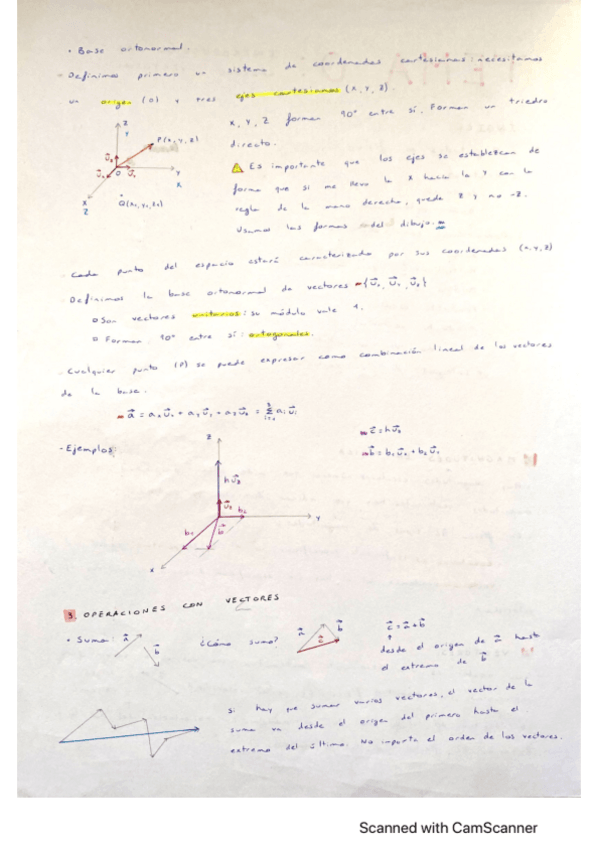 • Base ortonormal.
- Definimos primero un sistema de coordenadas cartesianas: necesitamos
un origen (O) y tres ejes cartesianos (x, y, z).
x, y, z forman 90° entre sí. Forman un triedro
directo.
Z
Y
P(x, y, z)
O
Y
X
X
Z
⚠ Es importante que los ejes se establezcan de
forma que si me llevo la X hacia la Y con la
regla de la mano derecha, quede Z y no -Z.
Usamos las formas del dibujo.
- Cada punto del espacio estará caracterizado por sus coordenadas (x,y,z)
- Definimos la base ortonormal de vectores
Son vectores unitarios: su módulo vale 1.
Forman 90° entre sí: ortogonales.
- Cualquier punto (P) se puede expresar como combinación lineal de los vectores
de la base.
- Ejemplos
z
y
x
b⃗
3 OPERACIONES CON VECTORES
• Suma: a⃗ b⃗ ¿Cómo sumo? a⃗ b⃗ c⃗ c⃗ = a⃗ + b⃗
desde el origen de a⃗ hasta
el extremo de b⃗
si hay que sumar varios vectores, el vector de la
suma va desde el origen del primero hasta el
extremo del último. No importa el orden de los vectores.
Scanned with CamScanner